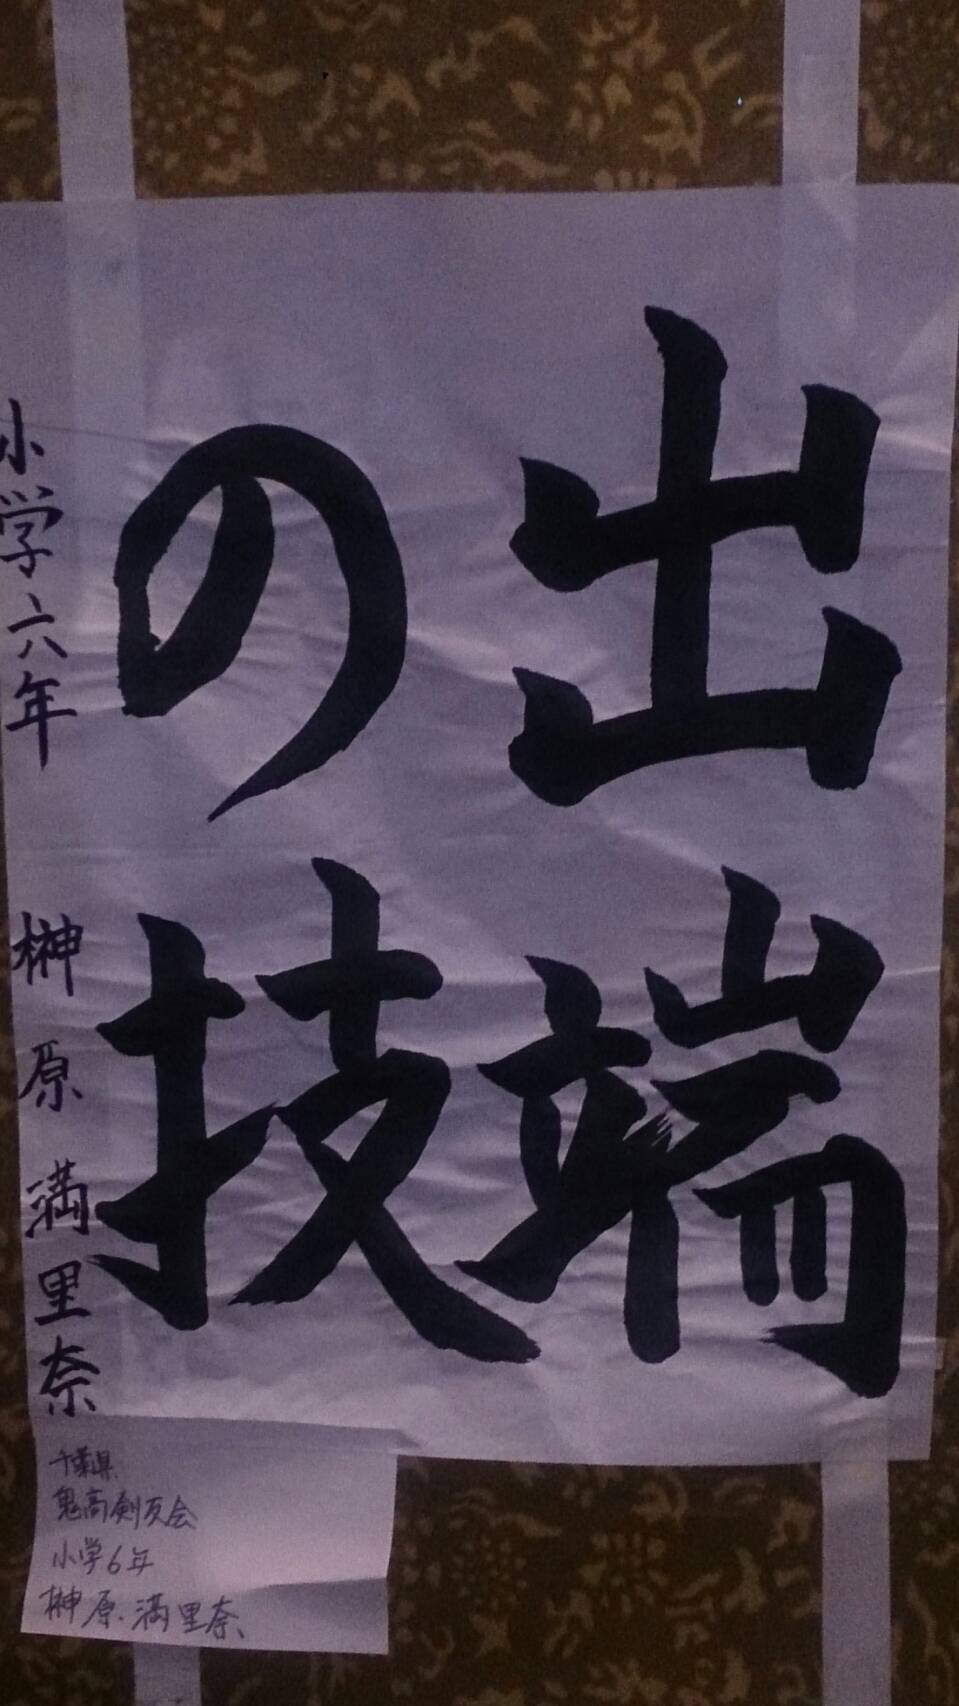 出端
の技
小学六年 榊原満里奈
千葉県
鬼高剣友会
小学6年
榊原満里奈